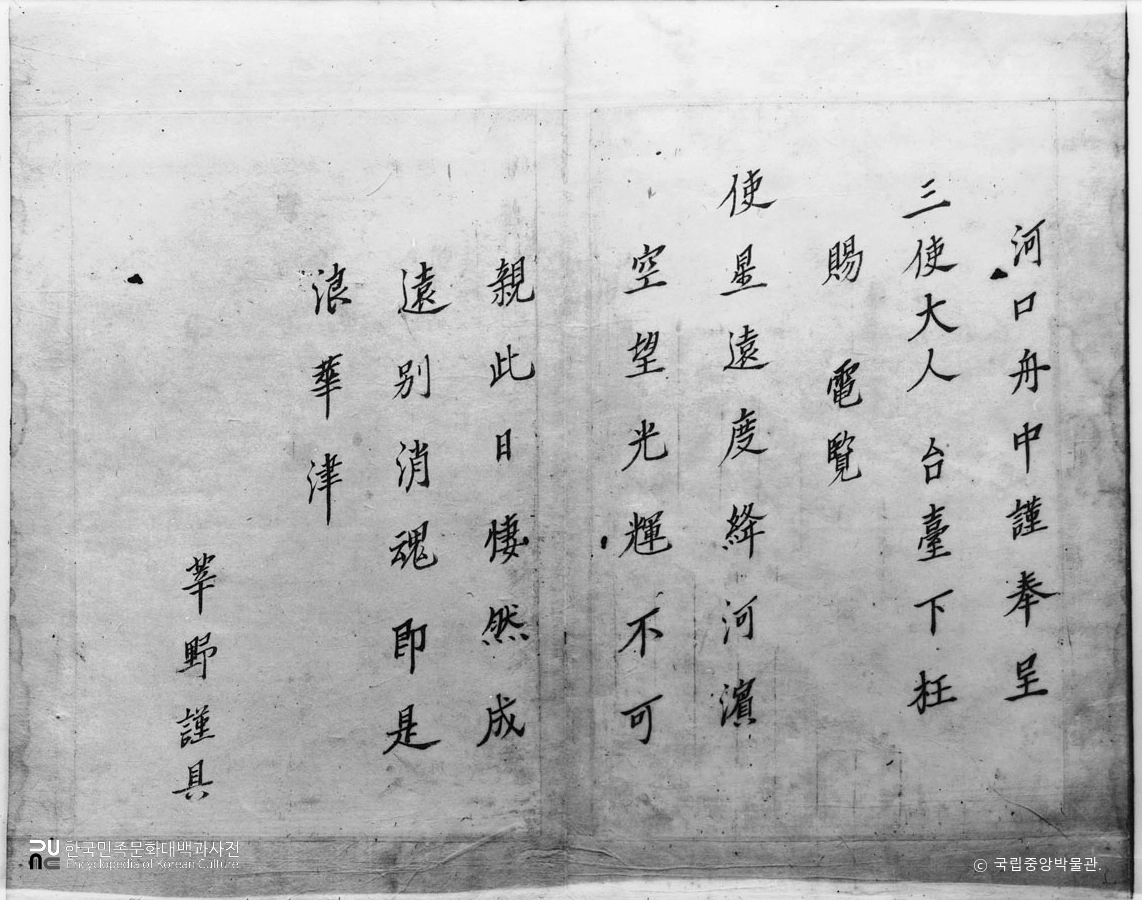 河口舟中謹奉呈
三使大人 台臺下枉
賜 電覽
使星遠度絳河濱
空望光輝不可
親此日悽然成
遠別消魂即是
浪華津
莘野謹具
한국민족문화대백과사전
Encyclopedia of Korean Culture
© 국립중앙박물관.